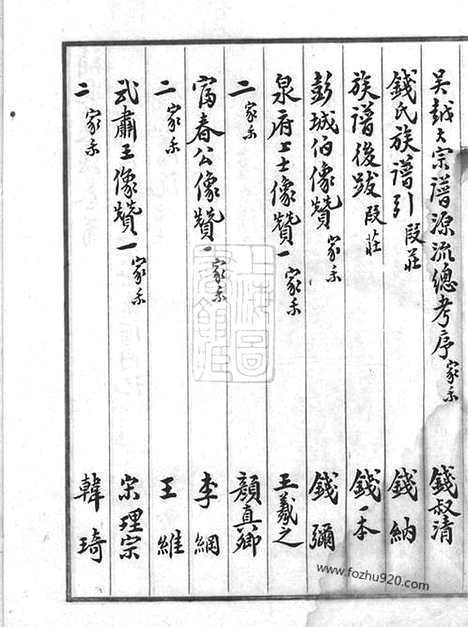 吳越大宗譜源流總考序 家乘 錢叔清
錢氏族譜引 段莊 錢納
族譜後跋 段莊 錢一本
彭城伯像贊 家乘 錢彌
泉府上士像贊一 家乘 王羲之
二 家乘 顏真卿
富春公像贊一 家乘 李綱
二 家乘 王維
武肅王像贊一 家乘 宋理宗
二 家乘 韓琦
www.fozhu920.com